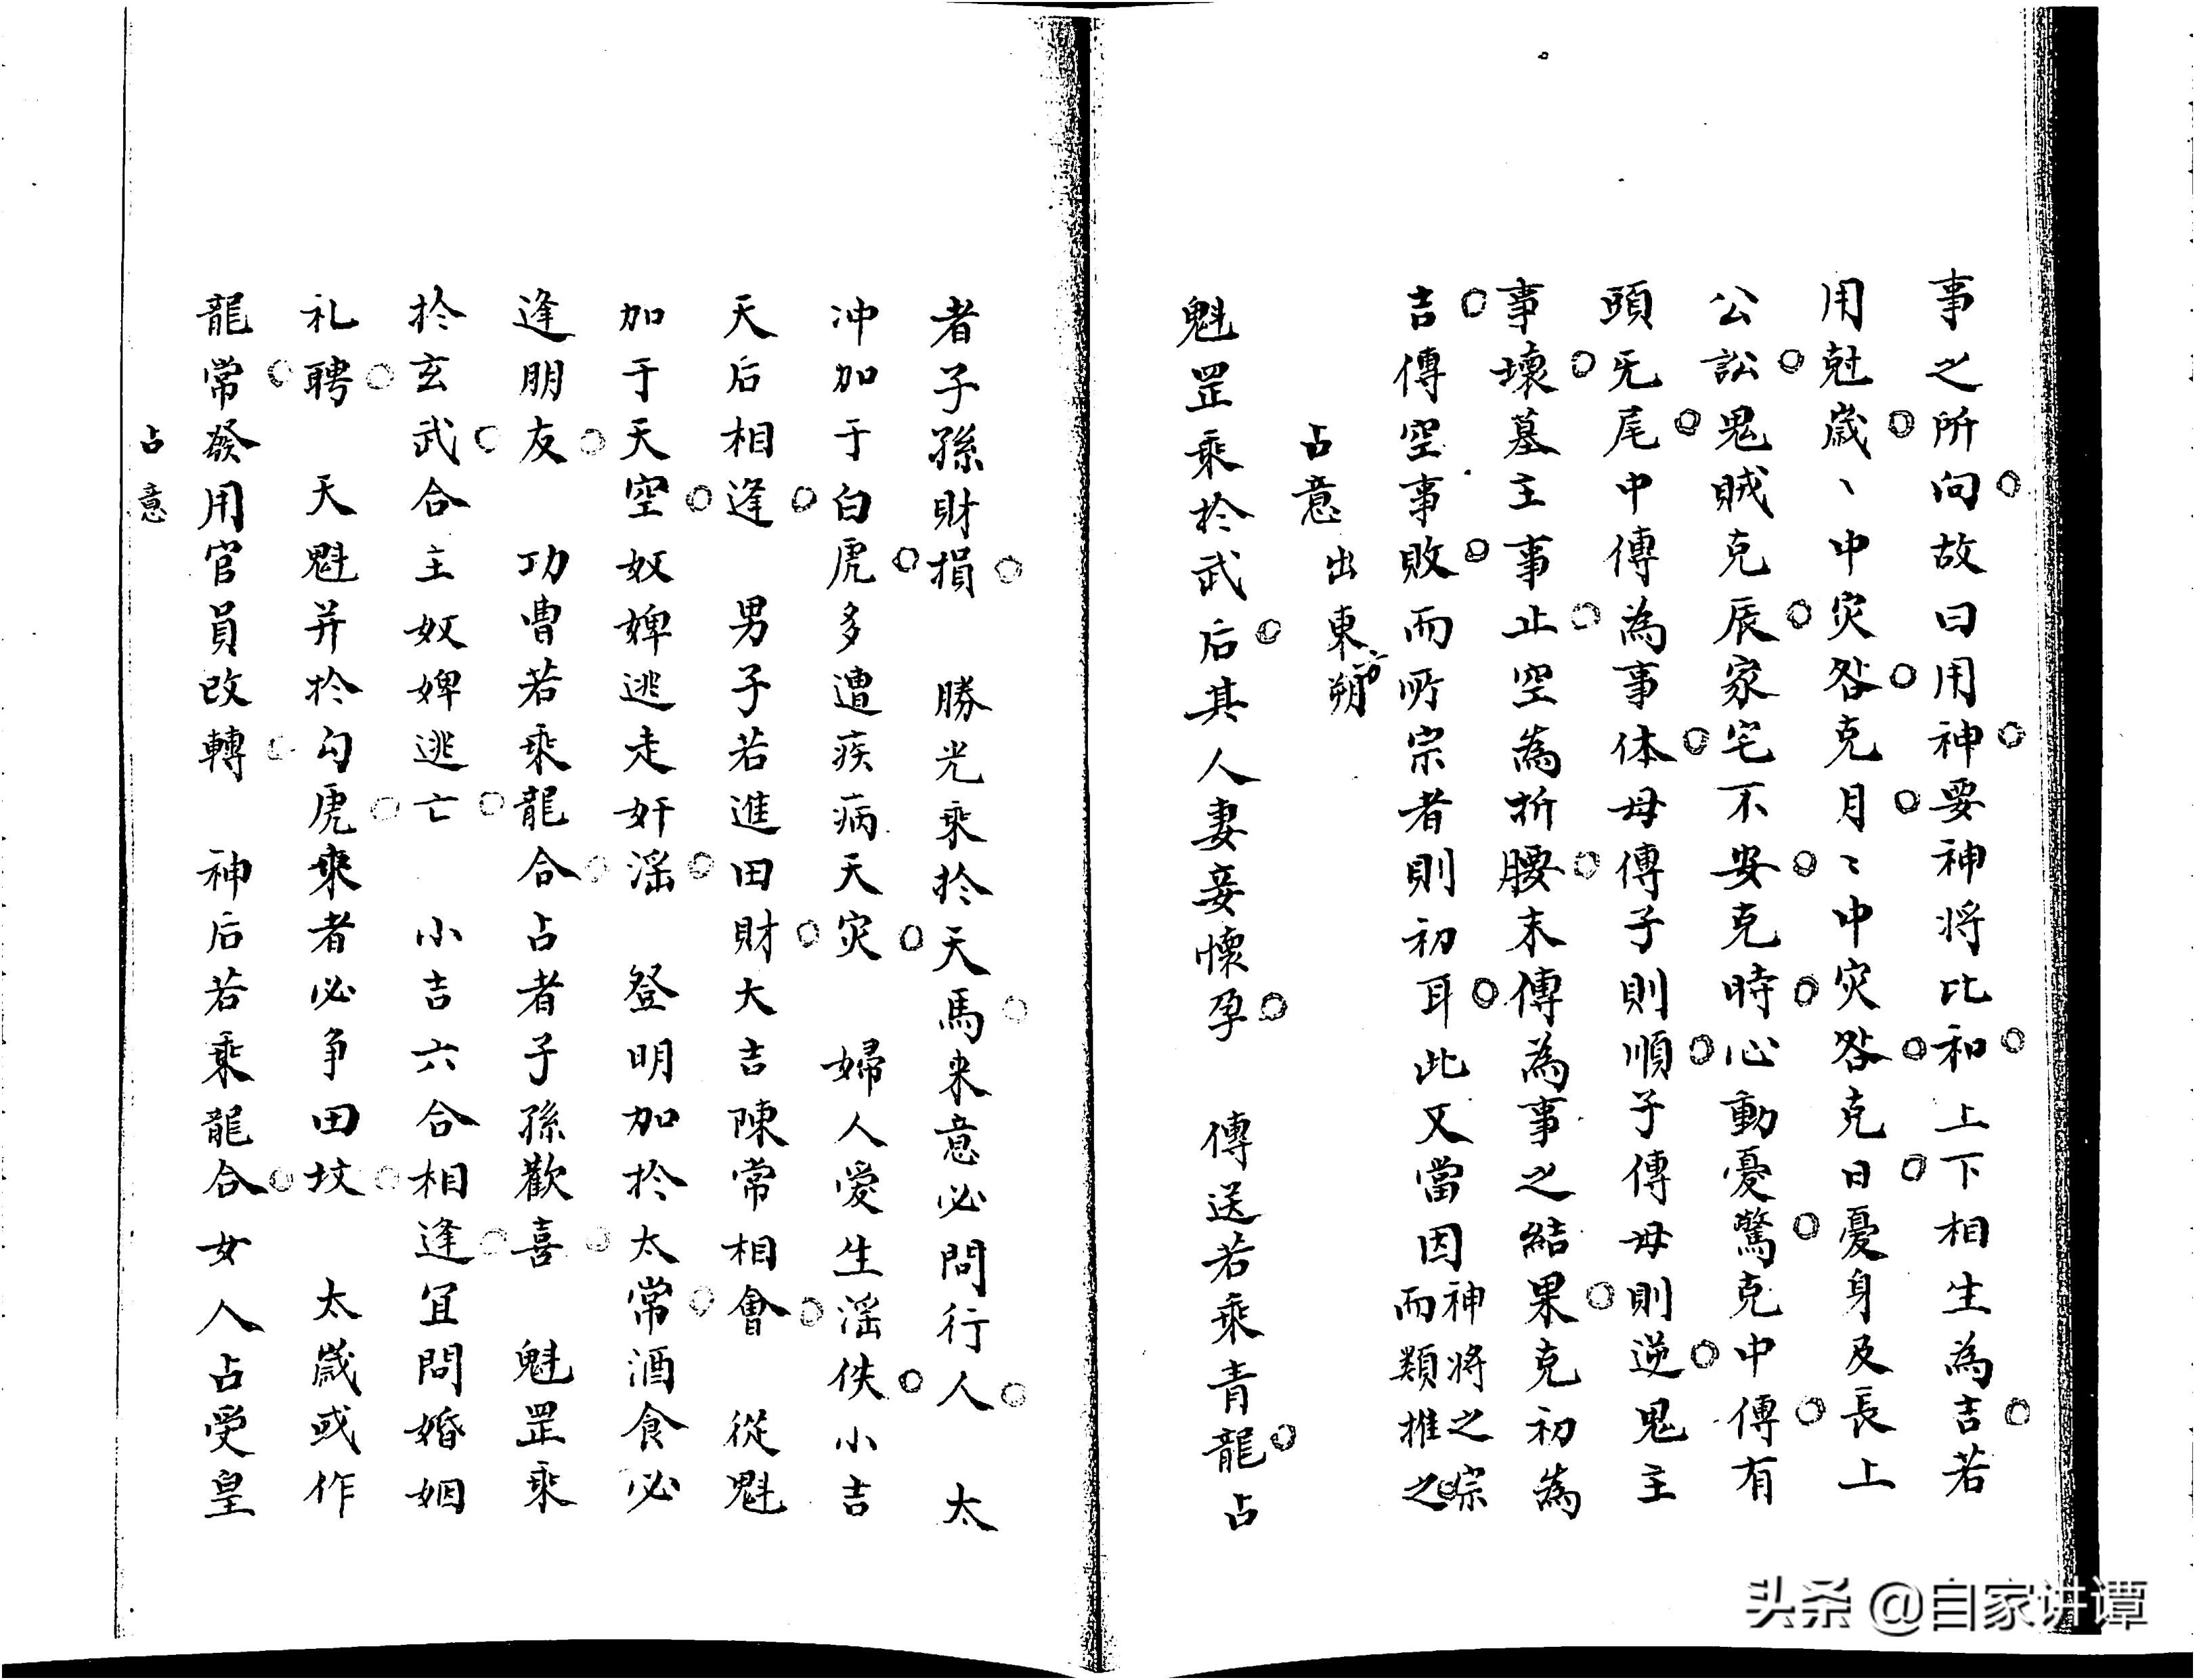 事之所向故曰用神要神将比和上下相生為吉若
用尅歲、中灾咎克月〻中灾咎克日憂身及長上
公訟鬼賊克辰家宅不安克時心動憂驚克中傳有
頭旡尾中傳為事体母傳子則順子傳母則逆鬼主
事壞墓主事止空為折腰末傳為事之結果克初為
吉傳空事敗而所宗者則初耳此又當因神将之宗而類推之
占意 出東方朔
魁罡乘於武后其人妻妾懷孕 傳送若乘青龍占
者子孫財損 勝光乘於天馬来意必問行人 太
冲加于白虎多遭疾病天灾 婦人愛生滛佚小吉
天后相逢 男子若進田財大吉陳常相會 從魁
加于天空奴婢逃走奸滛 登明加於太常酒食必
逢朋友 功曹若乘龍合占者子孫歡喜 魁罡乘
於玄武合主奴婢逃亡 小吉六合相逢宜問婚姻
礼聘 天魁并於勾虎乘者必争田坟 太歲或作
龍常發用官員改轉 神后若乘龍合女人占受皇
占意
头条 @自家讲谭